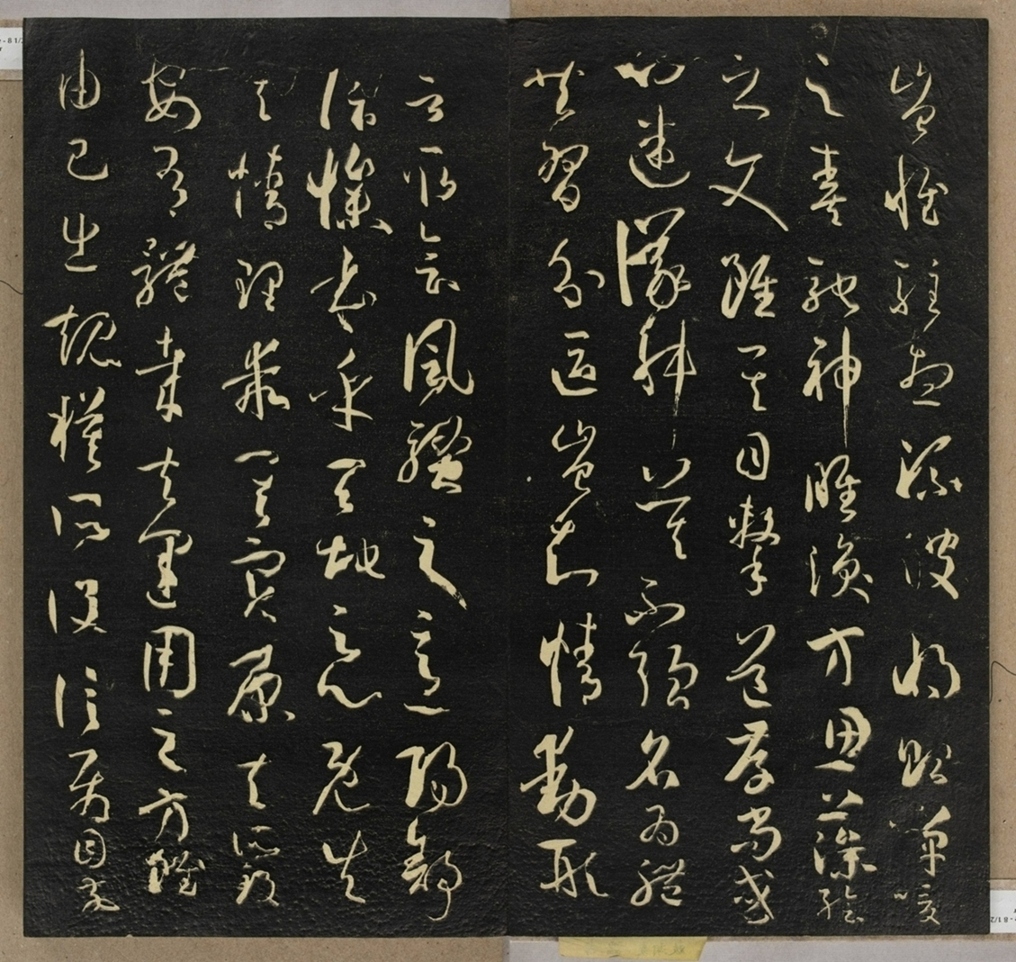 豈惟駐想流波將貽嘽噯
之奏馳神睢渙方思藻繪
之文雖其目擊道存尚或
心迷議舛莫不強名為體
共習分區豈知情動形
言取會風騷之意陽舒
陰慘本乎天地之心既失
其情理乖其實原夫所致
安有體哉夫運用之方雖
由己出規模所設信屬目前